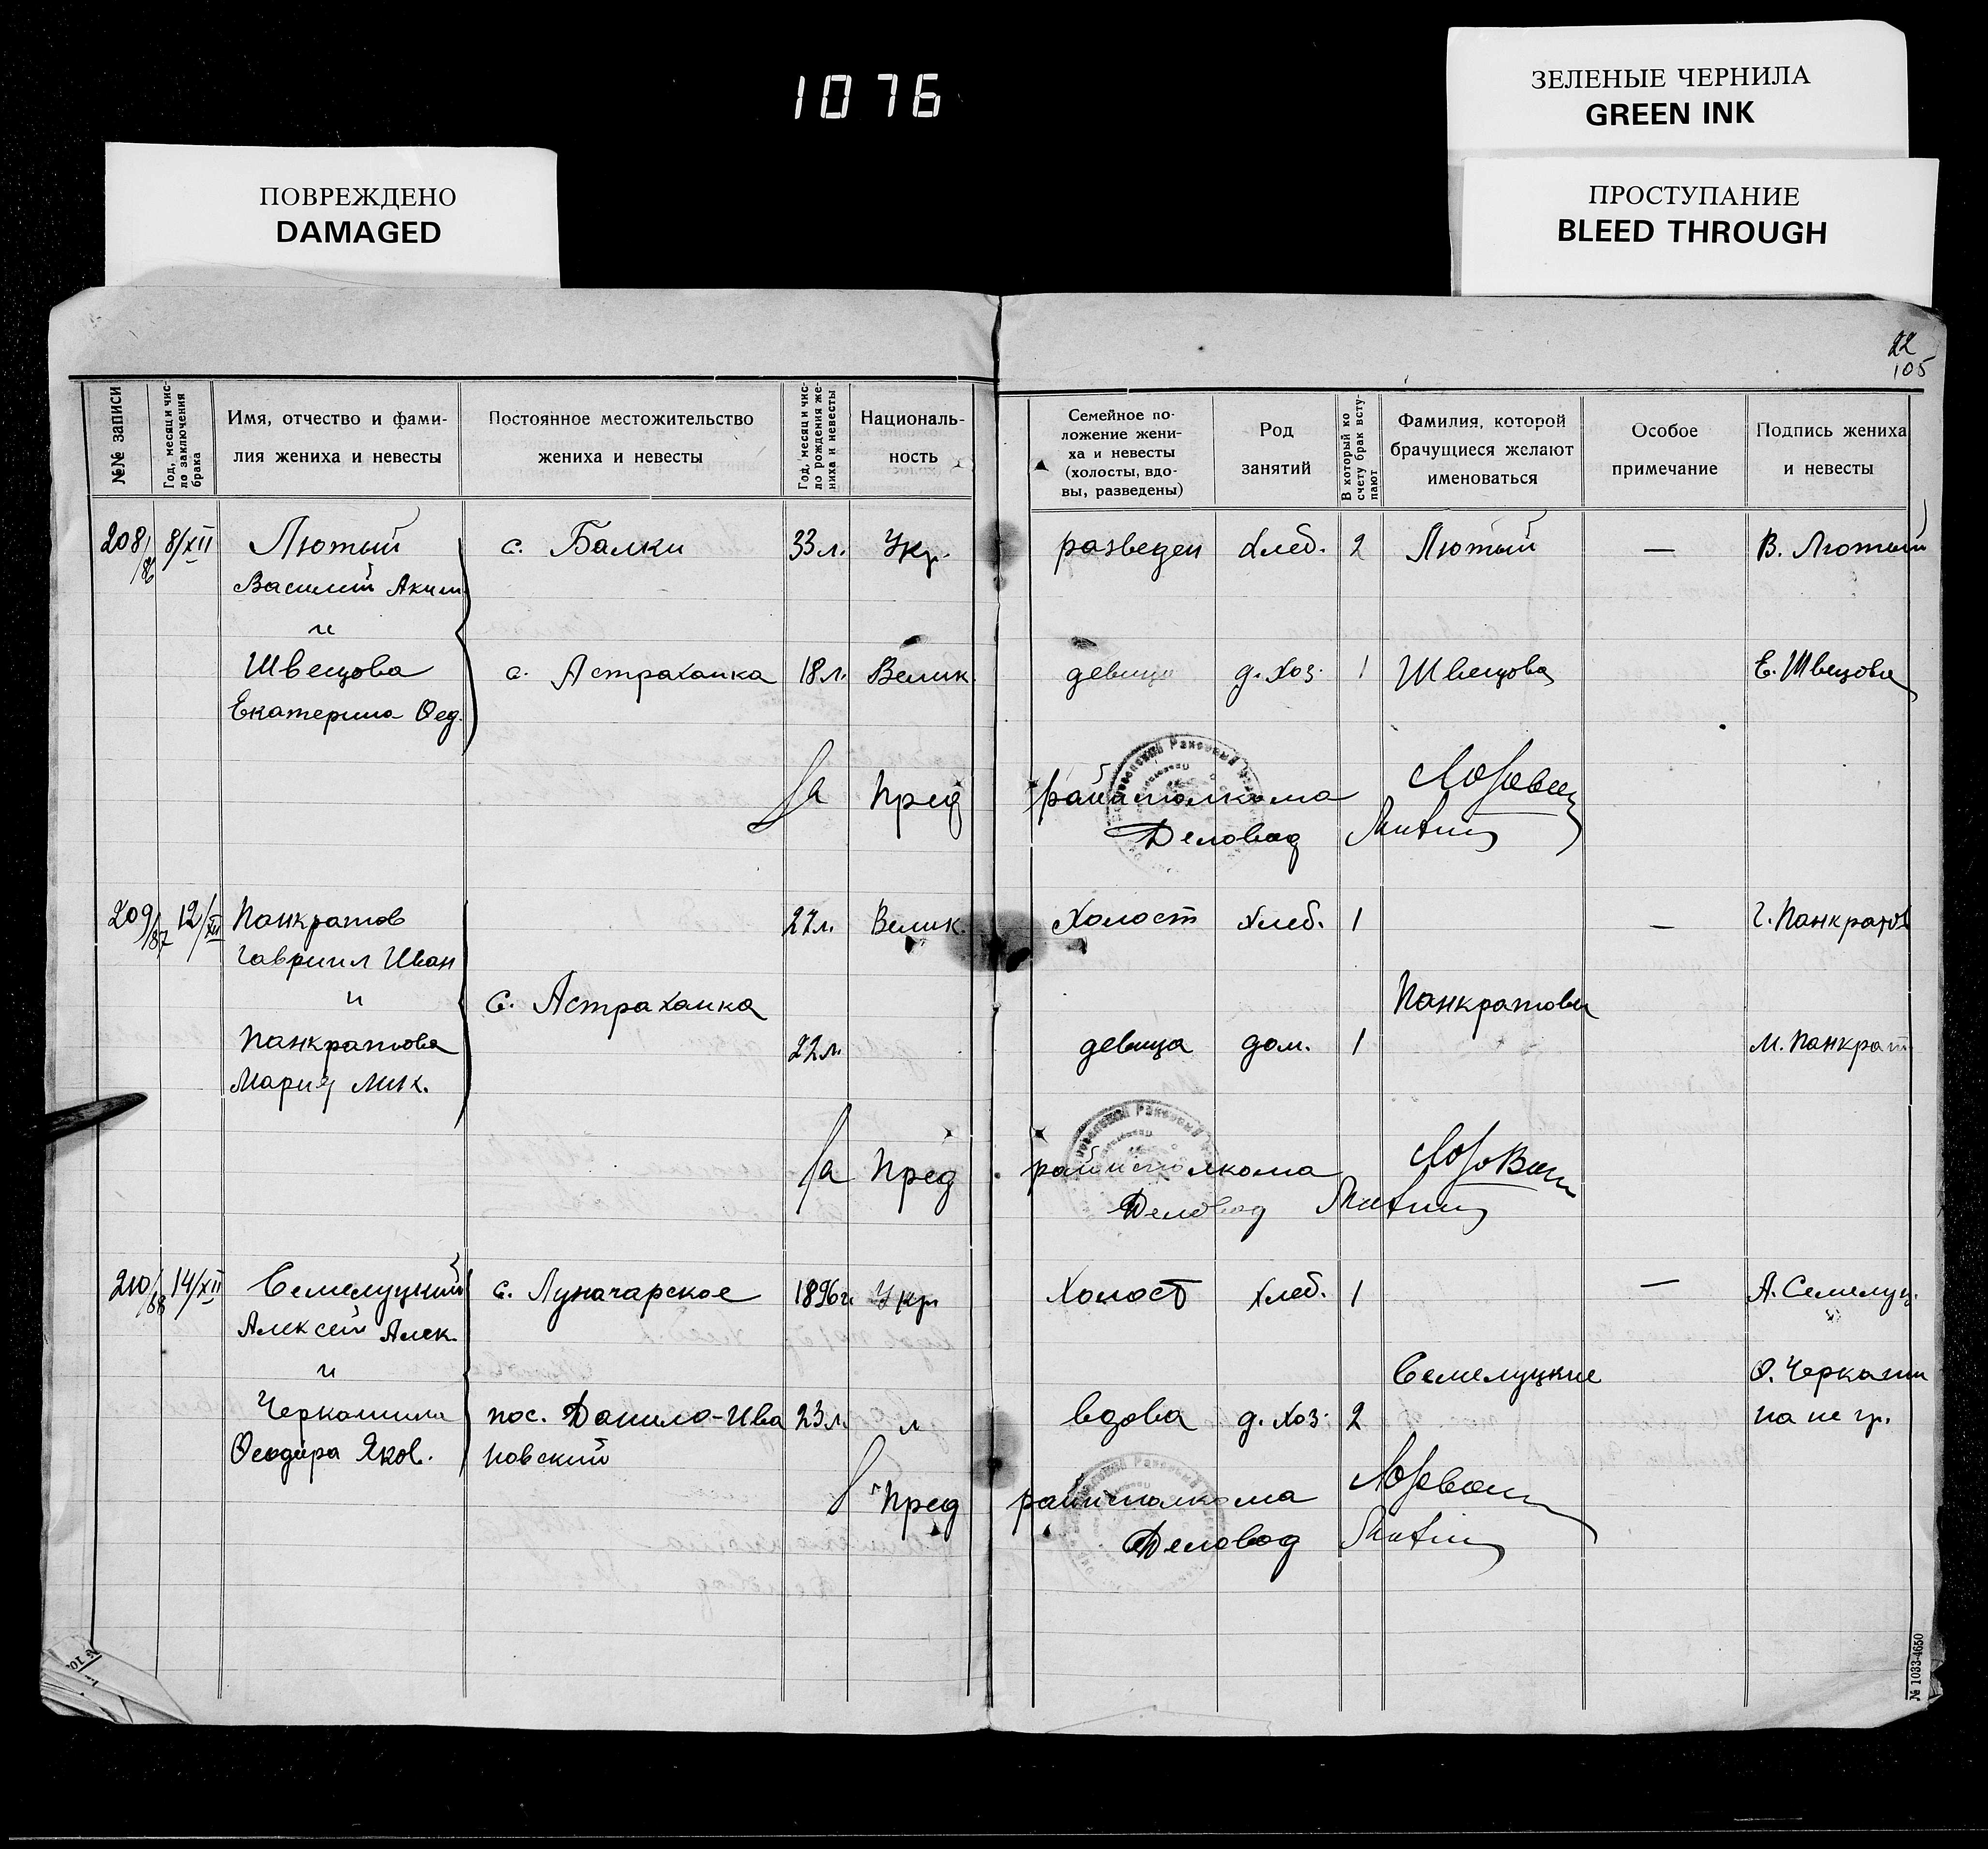 1076
ЗЕЛЕНЫЕ ЧЕРНИЛА
GREEN INK
ПОВРЕЖДЕНО
DAMAGED
ПРОСТУПАНИЕ
BLEED THROUGH
22
105
№№ записи
Год, месяц и чис-
ло заключения
брака
Имя, отчество и фами-
лия жениха и невесты
Постоянное местожительство
жениха и невесты
Год, месяц и чис-
ло рождения же-
ниха и невесты
Националь-
ность
Семейное по-
ложение жени-
ха и невесты
(холосты, вдо-
вы, разведены)
Род
занятий
В который по
счету брак всту-
пают
Фамилия, которой
брачущиеся желают
именоваться
Особое
примечание
Подпись жениха
и невесты
208/86 8/XII Лютый с. Балки 33 л. Укр. разведен хлеб. 2 Лютый — В. Лютый
Василий Аким.
и
Швецова с. Астраханка 18 л. Велик. девица д. хоз. 1 Швецова Е. Швецова
Екатерина Фед.
За Пред райисполкома
Деловод
209/87 12/XII Панкратов 27 л. Велик. Холост хлеб. 1 — Г. Панкратов
Гавриил Иван
и с. Астраханка Панкратовы
Панкратова 22 л. девица дом. 1 М. Панкрат
Мария Мих.
За Пред райисполкома
Деловод
210/88 14/XII Семелуцкий с. Луначарское 1896 г. Укр холост хлеб. 1 — А. Семелуц.
Алексей Алек.
и Семелуцкие Ф. Черкаши
Черкашина пос. Данило-Ива 23 л. л вдова д. хоз. 2 на не гр.
Феодора Яков. новский
Пред райисполкома
Деловод
№ 1033-4650